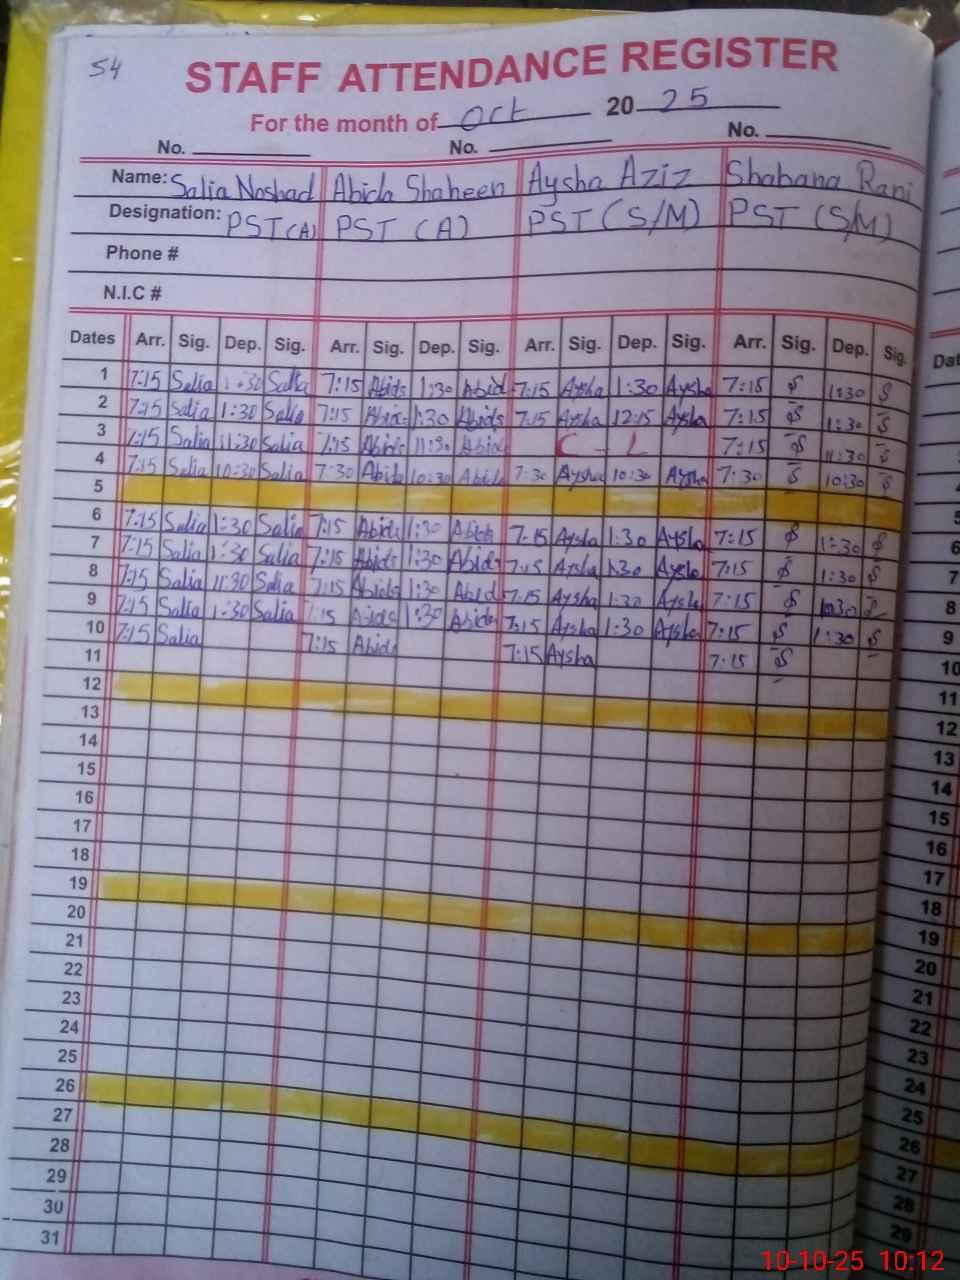 54
STAFF ATTENDANCE REGISTER
For the month of Oct 2025
No. No. No.
Name: Salia Noshad Abida Shaheen Aysha Aziz Shabana Rani
Designation: PST (A) PST (A) PST (S/M) PST (S/M)
Phone #
N.I.C #
Dates Arr. Sig. Dep. Sig. Arr. Sig. Dep. Sig. Arr. Sig. Dep. Sig. Arr. Sig. Dep. Sig.
1 7:15 Salia 1:30 Salia 7:15 Abida 1:30 Abid 7:15 Aysha 1:30 Aysha 7:15 S 1:30 S
2 7:15 Salia 1:30 Salia 7:15 Abida 1:30 Abida 7:15 Aysha 12:15 Aysha 7:15 S 1:30 S
3 7:15 Salia 11:30 Salia 7:15 Abida 11:30 Abida C - L 7:15 S 11:30 S
4 7:15 Salia 10:30 Salia 7:30 Abida 10:30 Abida 7:30 Aysha 10:30 Aysha 7:30 S 10:30 S
5
6 7:15 Salia 1:30 Salia 7:15 Abida 1:30 Abida 7:15 Aysha 1:30 Aysha 7:15 S 1:30 S
7 7:15 Salia 1:30 Salia 7:15 Abida 1:30 Abida 7:15 Aysha 1:30 Aysha 7:15 S 1:30 S
8 7:15 Salia 11:30 Salia 7:15 Abida 1:30 Abid 7:15 Aysha 1:30 Aysha 7:15 S 1:30 S
9 7:15 Salia 1:30 Salia 7:15 Abida 1:30 Abida 7:15 Aysha 1:30 Aysha 7:15 S 1:30 S
10 7:15 Salia 7:15 Abida 7:15 Aysha 7:15 S
11
12
13
14
15
16
17
18
19
20
21
22
23
24
25
26
27
28
29
30
31
Dat
5
6
7
8
9
10
11
12
13
14
15
16
17
18
19
20
21
22
23
24
25
26
27
28
29
10-10-25 10:12